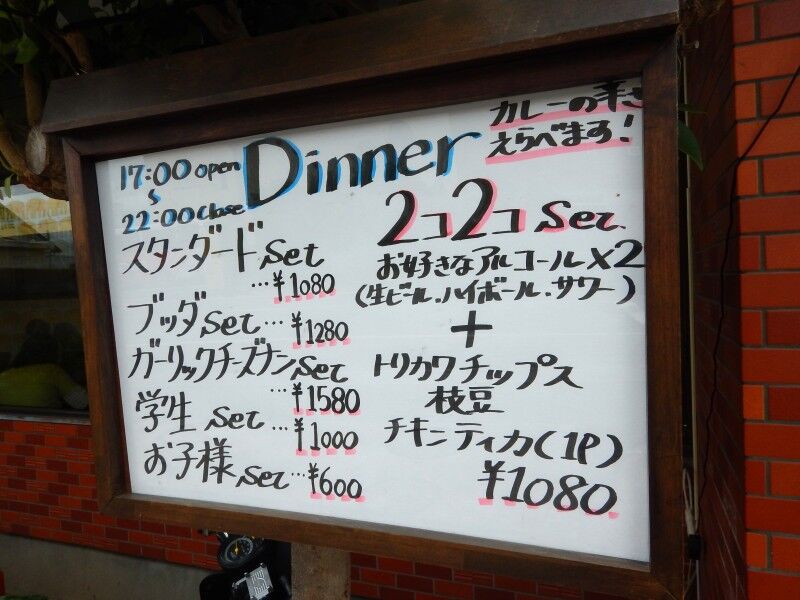 17:00 open
~
22:00 close
Dinner
カレーの辛さ
えらべます!
スタンダード Set
…¥1080
ブッダ Set…¥1280
ガーリックチーズナン Set
…¥1580
学生 Set…¥1000
お子様 Set…¥600
2コ2コ Set
お好きなアルコール×2
(生ビール、ハイボール、サワー)
+
トリカワチップス
枝豆
チキンティカ(1P)
¥1080